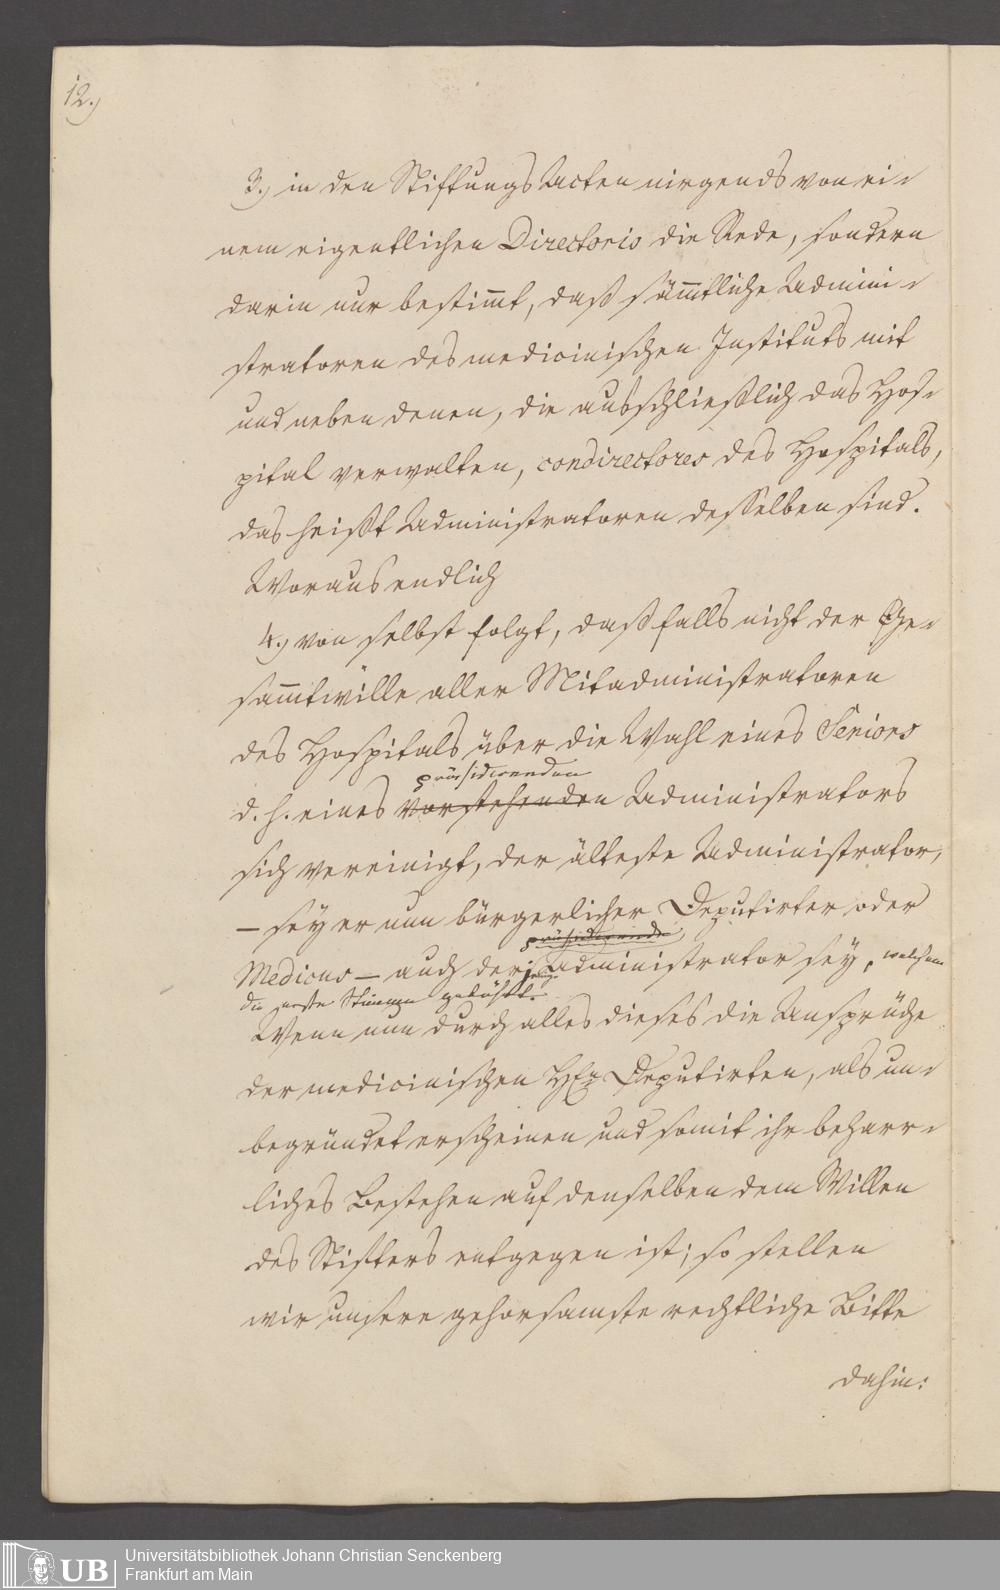 12.)
3.) in den Stiftungs Acten nirgends von ei-
nem eigentlichen Directorio die Rede, sondern
darin nur bestim̄t, daß säm̄tliche Admini-
stratoren des medicinischen Instituts mit
und neben denen, die ausschließlich das Hos-
pital verwalten, condirectores des Hospitals,
das heißt Administratoren desselben sind.
Woraus endlich
4.) von selbst folgt, daß falls nicht der Ge-
sam̄twille aller Mitadministratoren
des Hospitals über die Wahl eines Seniors
präsidirenden
d. h. eines vorstehenden Administrators
sich vereinigt, der älteste Administrator,
– sey er nun bürgerlicher Deputirter oder
präsidirende
Medicus – auch derjenige Administrator sey, welchem
die erste Stimme gebührt.
Wenn nun durch alles dieses die Ansprüche
der medicinischen Deputirten, als un-
begründet erscheinen und somit ihr beharr-
liches Bestehen auf denselben dem Willen
des Stifters entgegen ist; so stellen
wir unsere gehorsamste rechtliche Bitte
dahin:
UB
Universitätsbibliothek Johann Christian Senckenberg
Frankfurt am Main